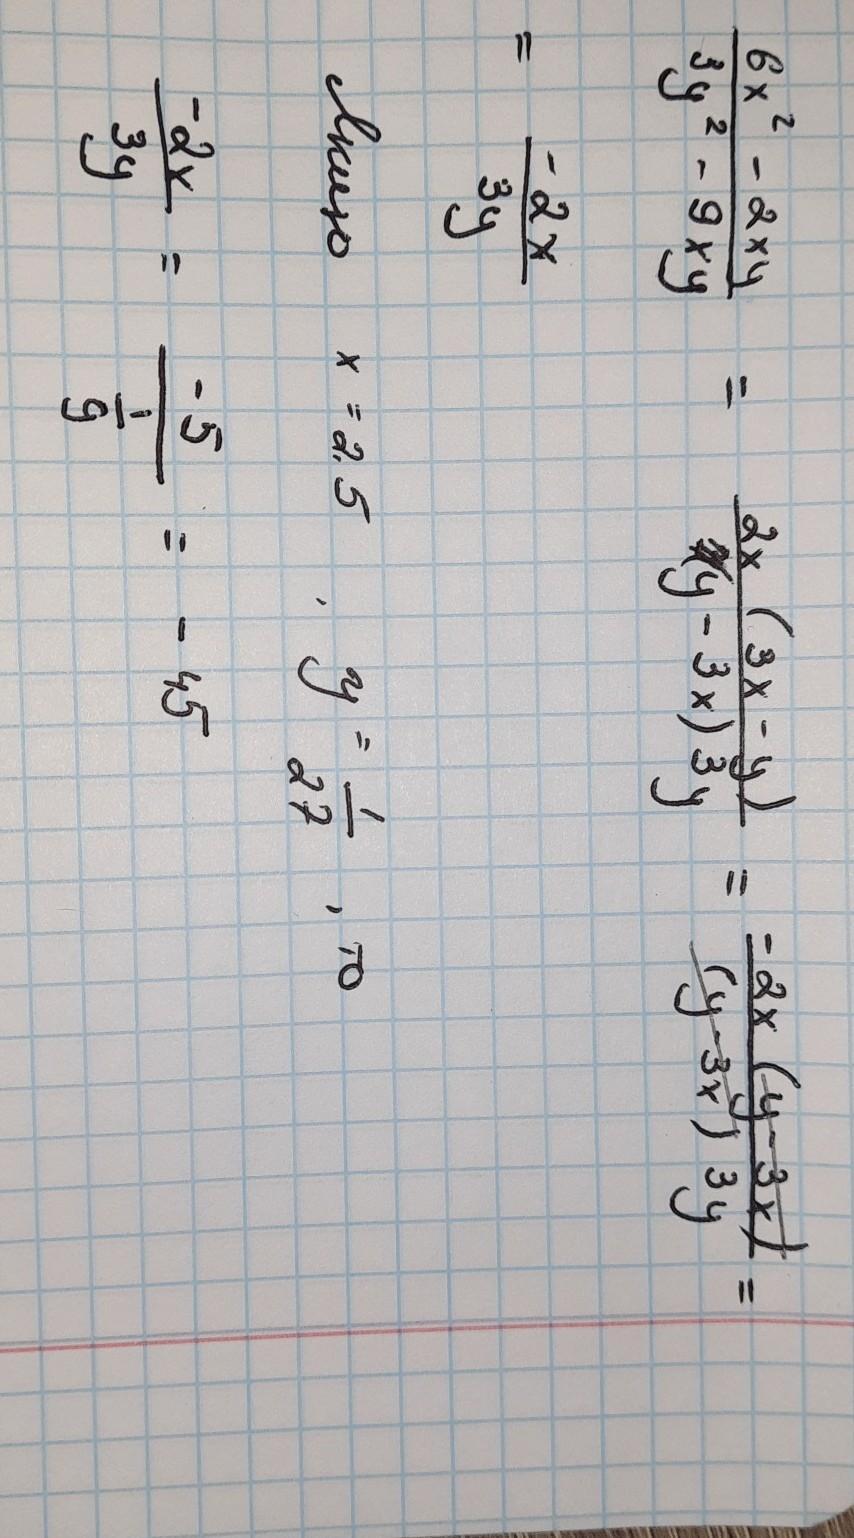 6x² - 2xy / 3y² - 9xy = 2x (3x - y) / (y - 3x) 3y = -2x (y - 3x) / (y - 3x) 3y =
= -2x / 3y
Якщо x = 2,5 , y = 1/27 , то
-2x / 3y = -5 / (1/9) = - 45